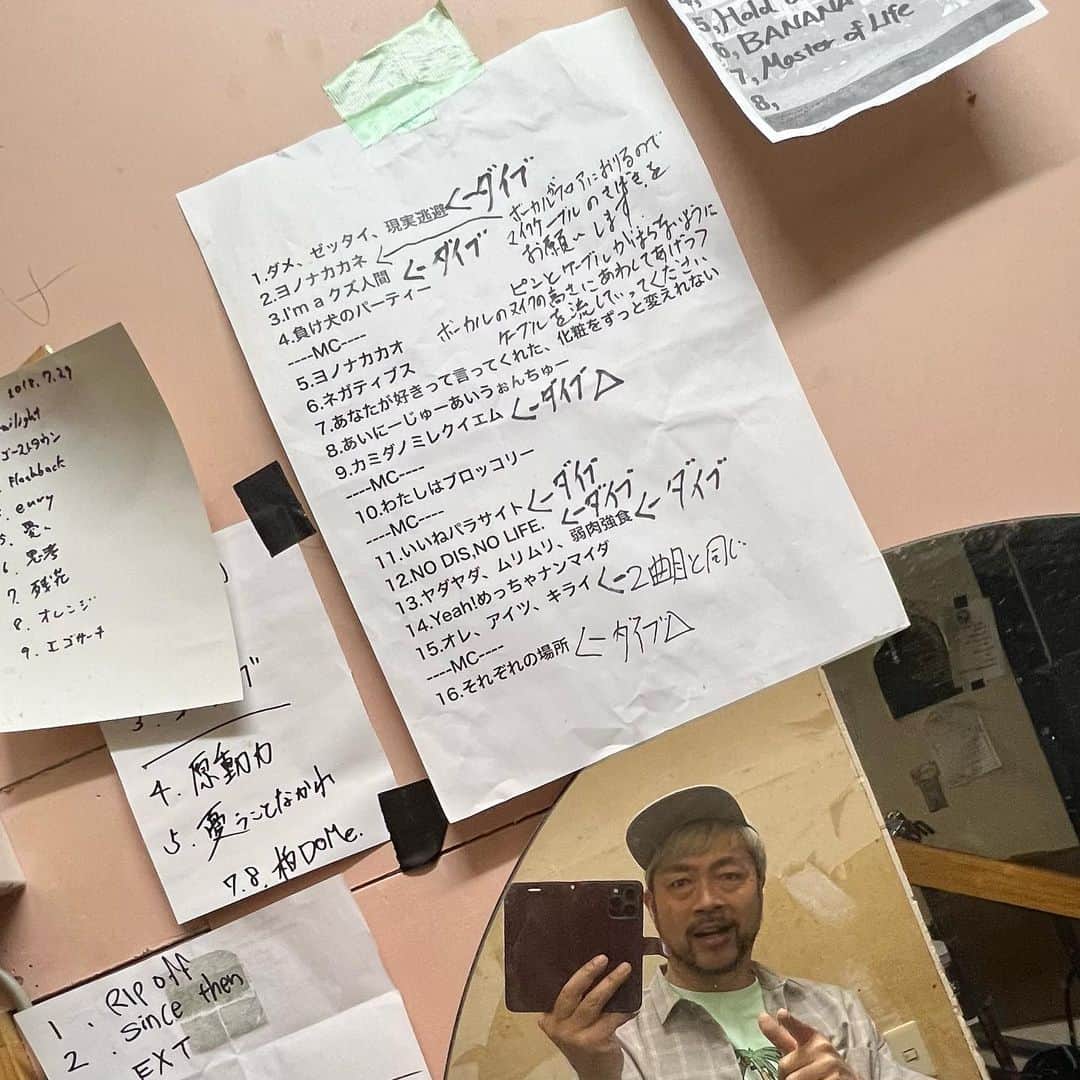 5, Hold
6, BANANA
7, Master of Life
8,
1.ダメ、ゼッタイ、現実逃避 <-ダイブ
2.ヨノナカカネ <
3.I'm a クズ人間 <-ダイブ
4.負け犬のパーティー
----MC----
5.ヨノナカカオ
6.ネガティブス
7.あなたが好きって言ってくれた、化粧をずっと変えれない
8.あいにーじゅーあいうぉんちゅー
9.カミダノミレクイエム <-ダイブ△
----MC----
10.わたしはブロッコリー
----MC----
11.いいねパラサイト <-ダイブ
12.NO DIS,NO LIFE. <-ダイブ
13.ヤダヤダ、ムリムリ、弱肉強食 <-ダイブ
14.Yeah!めっちゃナンマイダ
15.オレ、アイツ、キライ <-2曲目と同じ
----MC----
16.それぞれの場所 <-ダイブ△
ボーカルがフロアにおりるので
マイクケーブルのさばきを
お願いします
ピンとケーブルがはらないように
ボーカルのマイクの高さにあわしてあげつつ
ケーブルを流していってください
2018.7.29
ゴーストタウン
Flashback
envy
6. 思考
7. 残花
8. オレンジ
9. エゴサーチ
4. 原動力
5. 憂うことなかれ
7.8. 柏DOMe.
1. RIP off
2. Since then
EXT